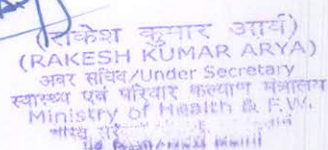 (राकेश कुमार आर्य)
(RAKESH KUMAR ARYA)
अवर सचिव/Under Secretary
स्वास्थ्य एवं परिवार कल्याण मंत्रालय
Ministry of Health & F.W.